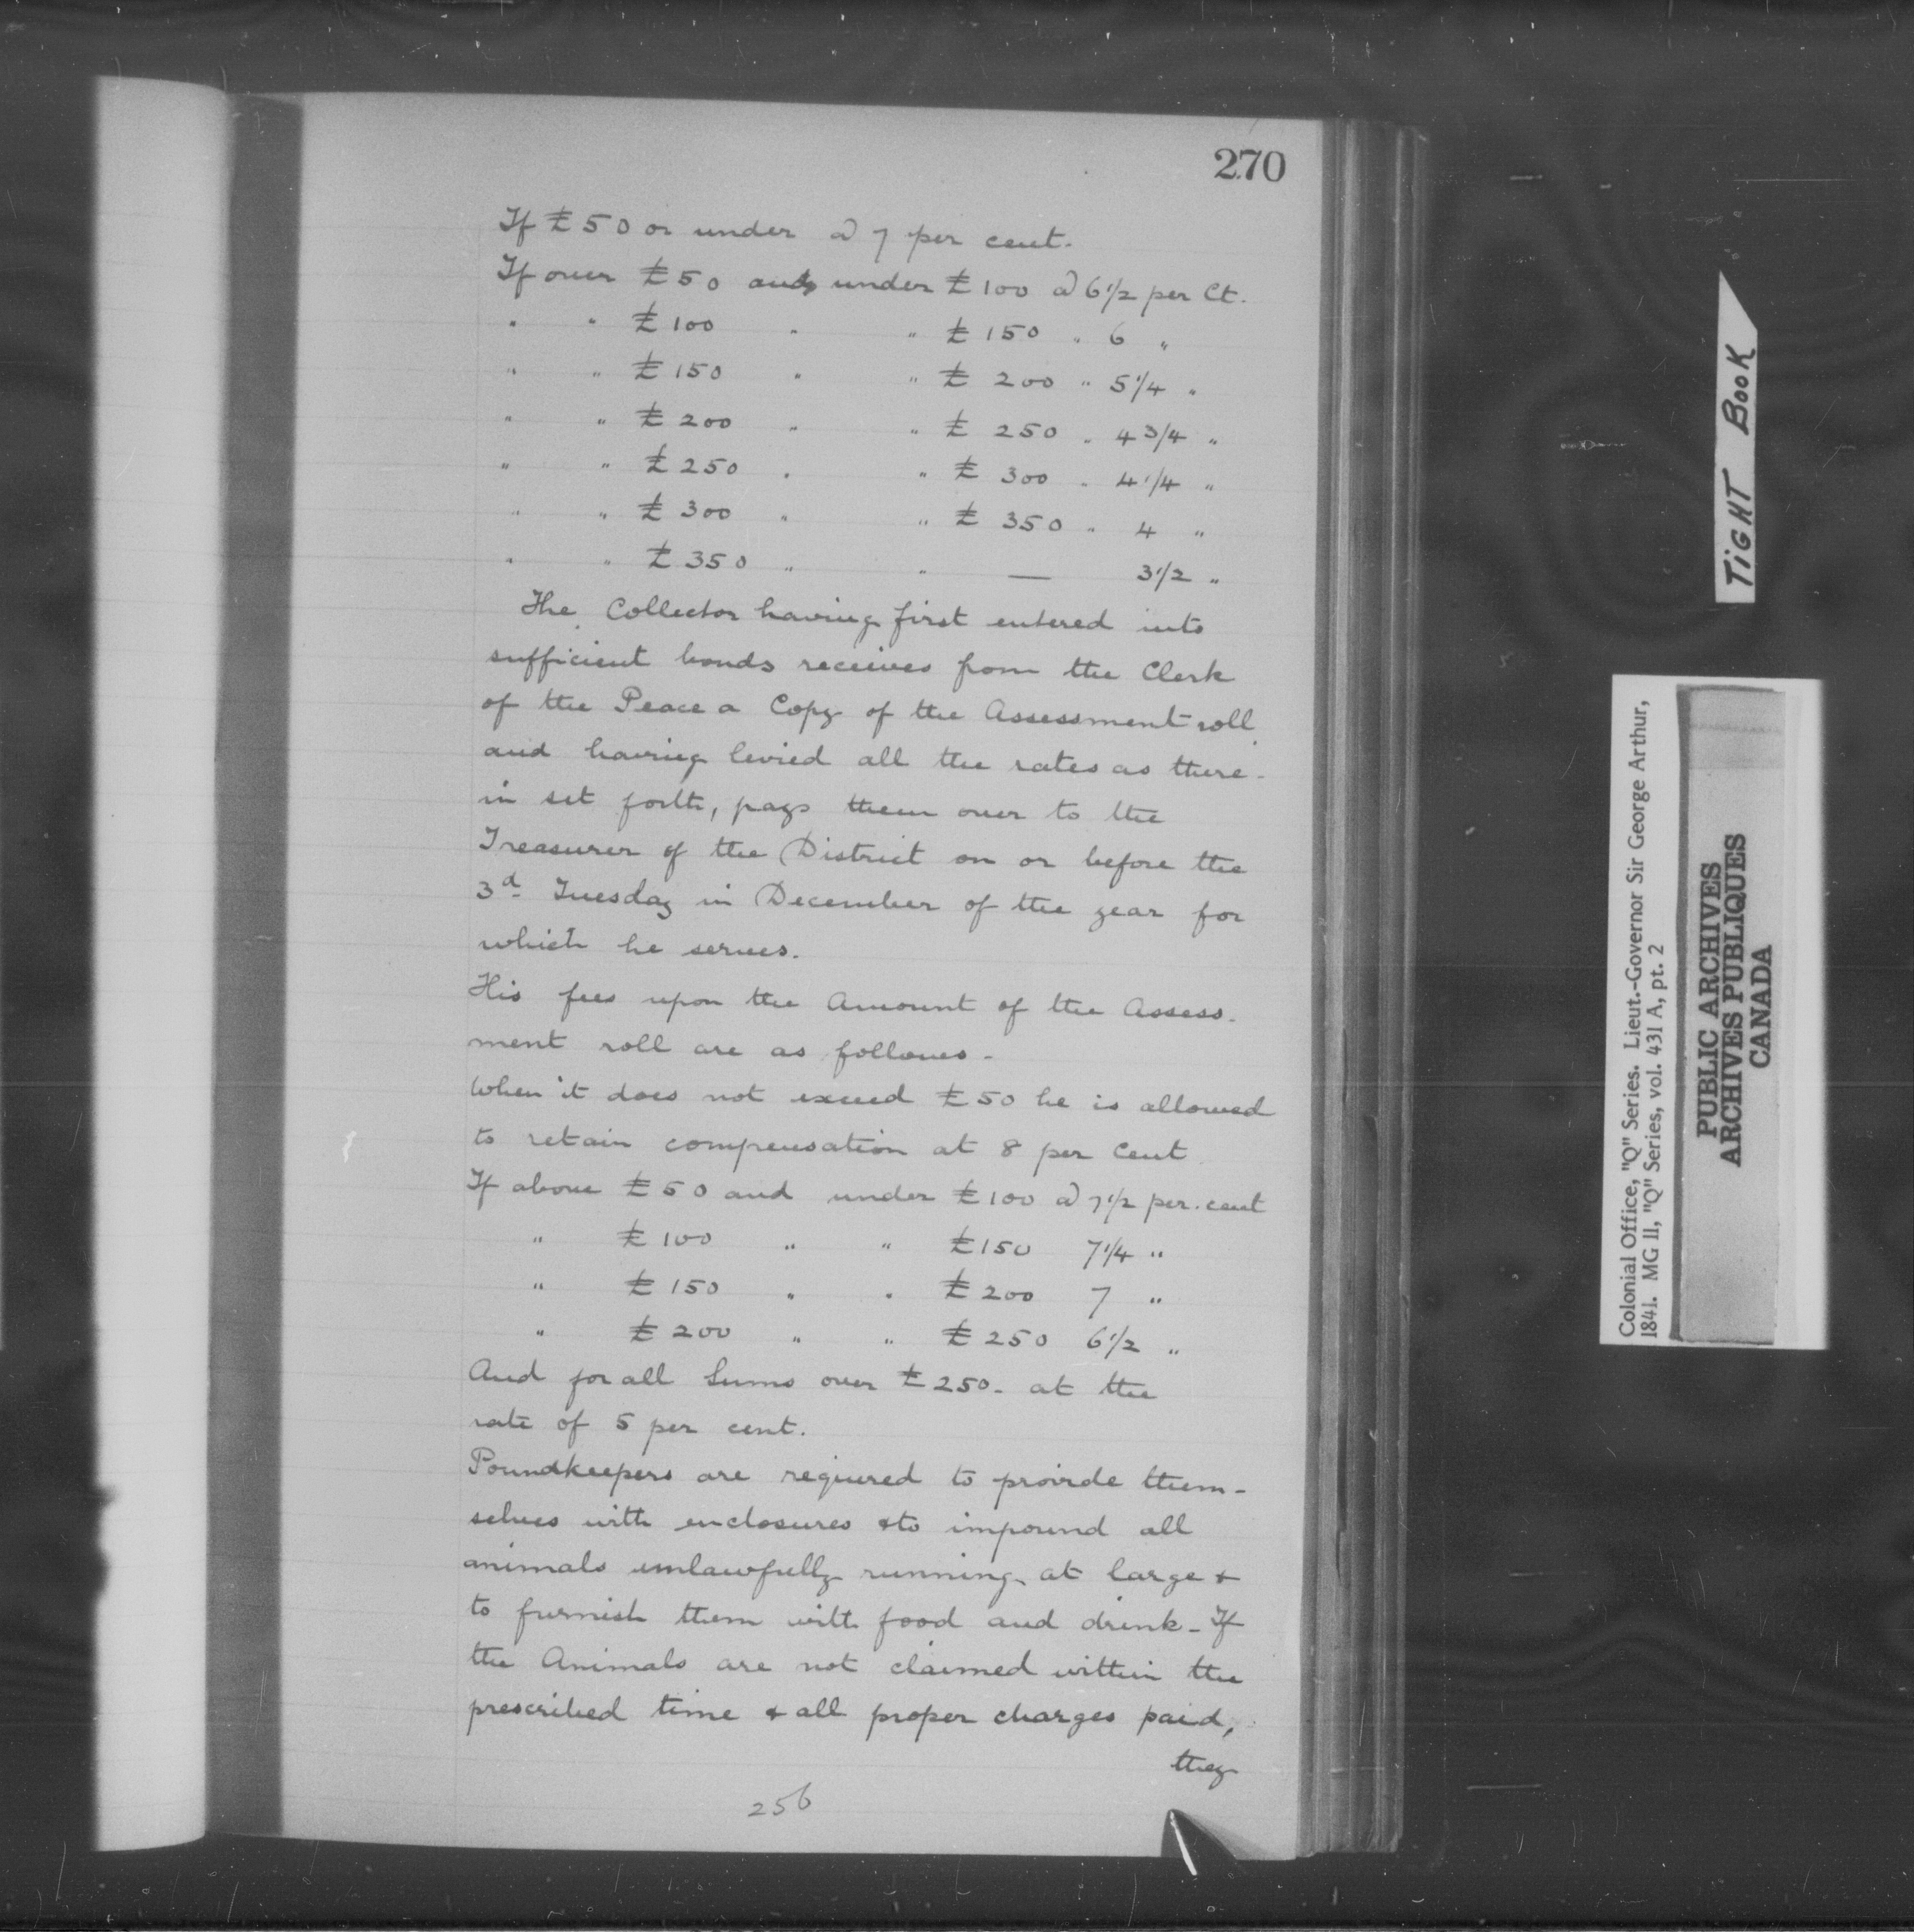 270
If £50 or under @ 7 per cent.
If over £50 and under £100 @ 6 1/2 per Ct.
" " £100 " " £150 " 6 "
" " £150 " " £200 " 5 1/4 "
" " £200 " " £250 " 4 3/4 "
" " £250 " " £300 " 4 1/4 "
" " £300 " " £350 " 4 "
" " £350 " " — 3 1/2 "
The Collector having first entered into
sufficient bonds receives from the Clerk
of the Peace a Copy of the Assessment roll
and having levied all the rates as there-
in set forth, pays them over to the
Treasurer of the District on or before the
3d Tuesday in December of the year for
which he serves.
His fees upon the Amount of the Assess-
ment roll are as follows -
When it does not exceed £50 he is allowed
to retain compensation at 8 per Cent
If above £50 and under £100 @ 7 1/2 per. cent
" £100 " " £150 7 1/4 "
" £150 " " £200 7 "
" £200 " " £250 6 1/2 "
And for all Sums over £250 - at the
rate of 5 per cent.
Poundkeepers are required to provide them-
selves with enclosures & to impound all
animals unlawfully running at large &
to furnish them with food and drink - If
the Animals are not claimed within the
prescribed time & all proper charges paid,
they
256
TIGHT BOOK
Colonial Office, "Q" Series. Lieut.-Governor Sir George Arthur,
1841. MG 11, "Q" Series, vol. 431 A, pt. 2
PUBLIC ARCHIVES
ARCHIVES PUBLIQUES
CANADA